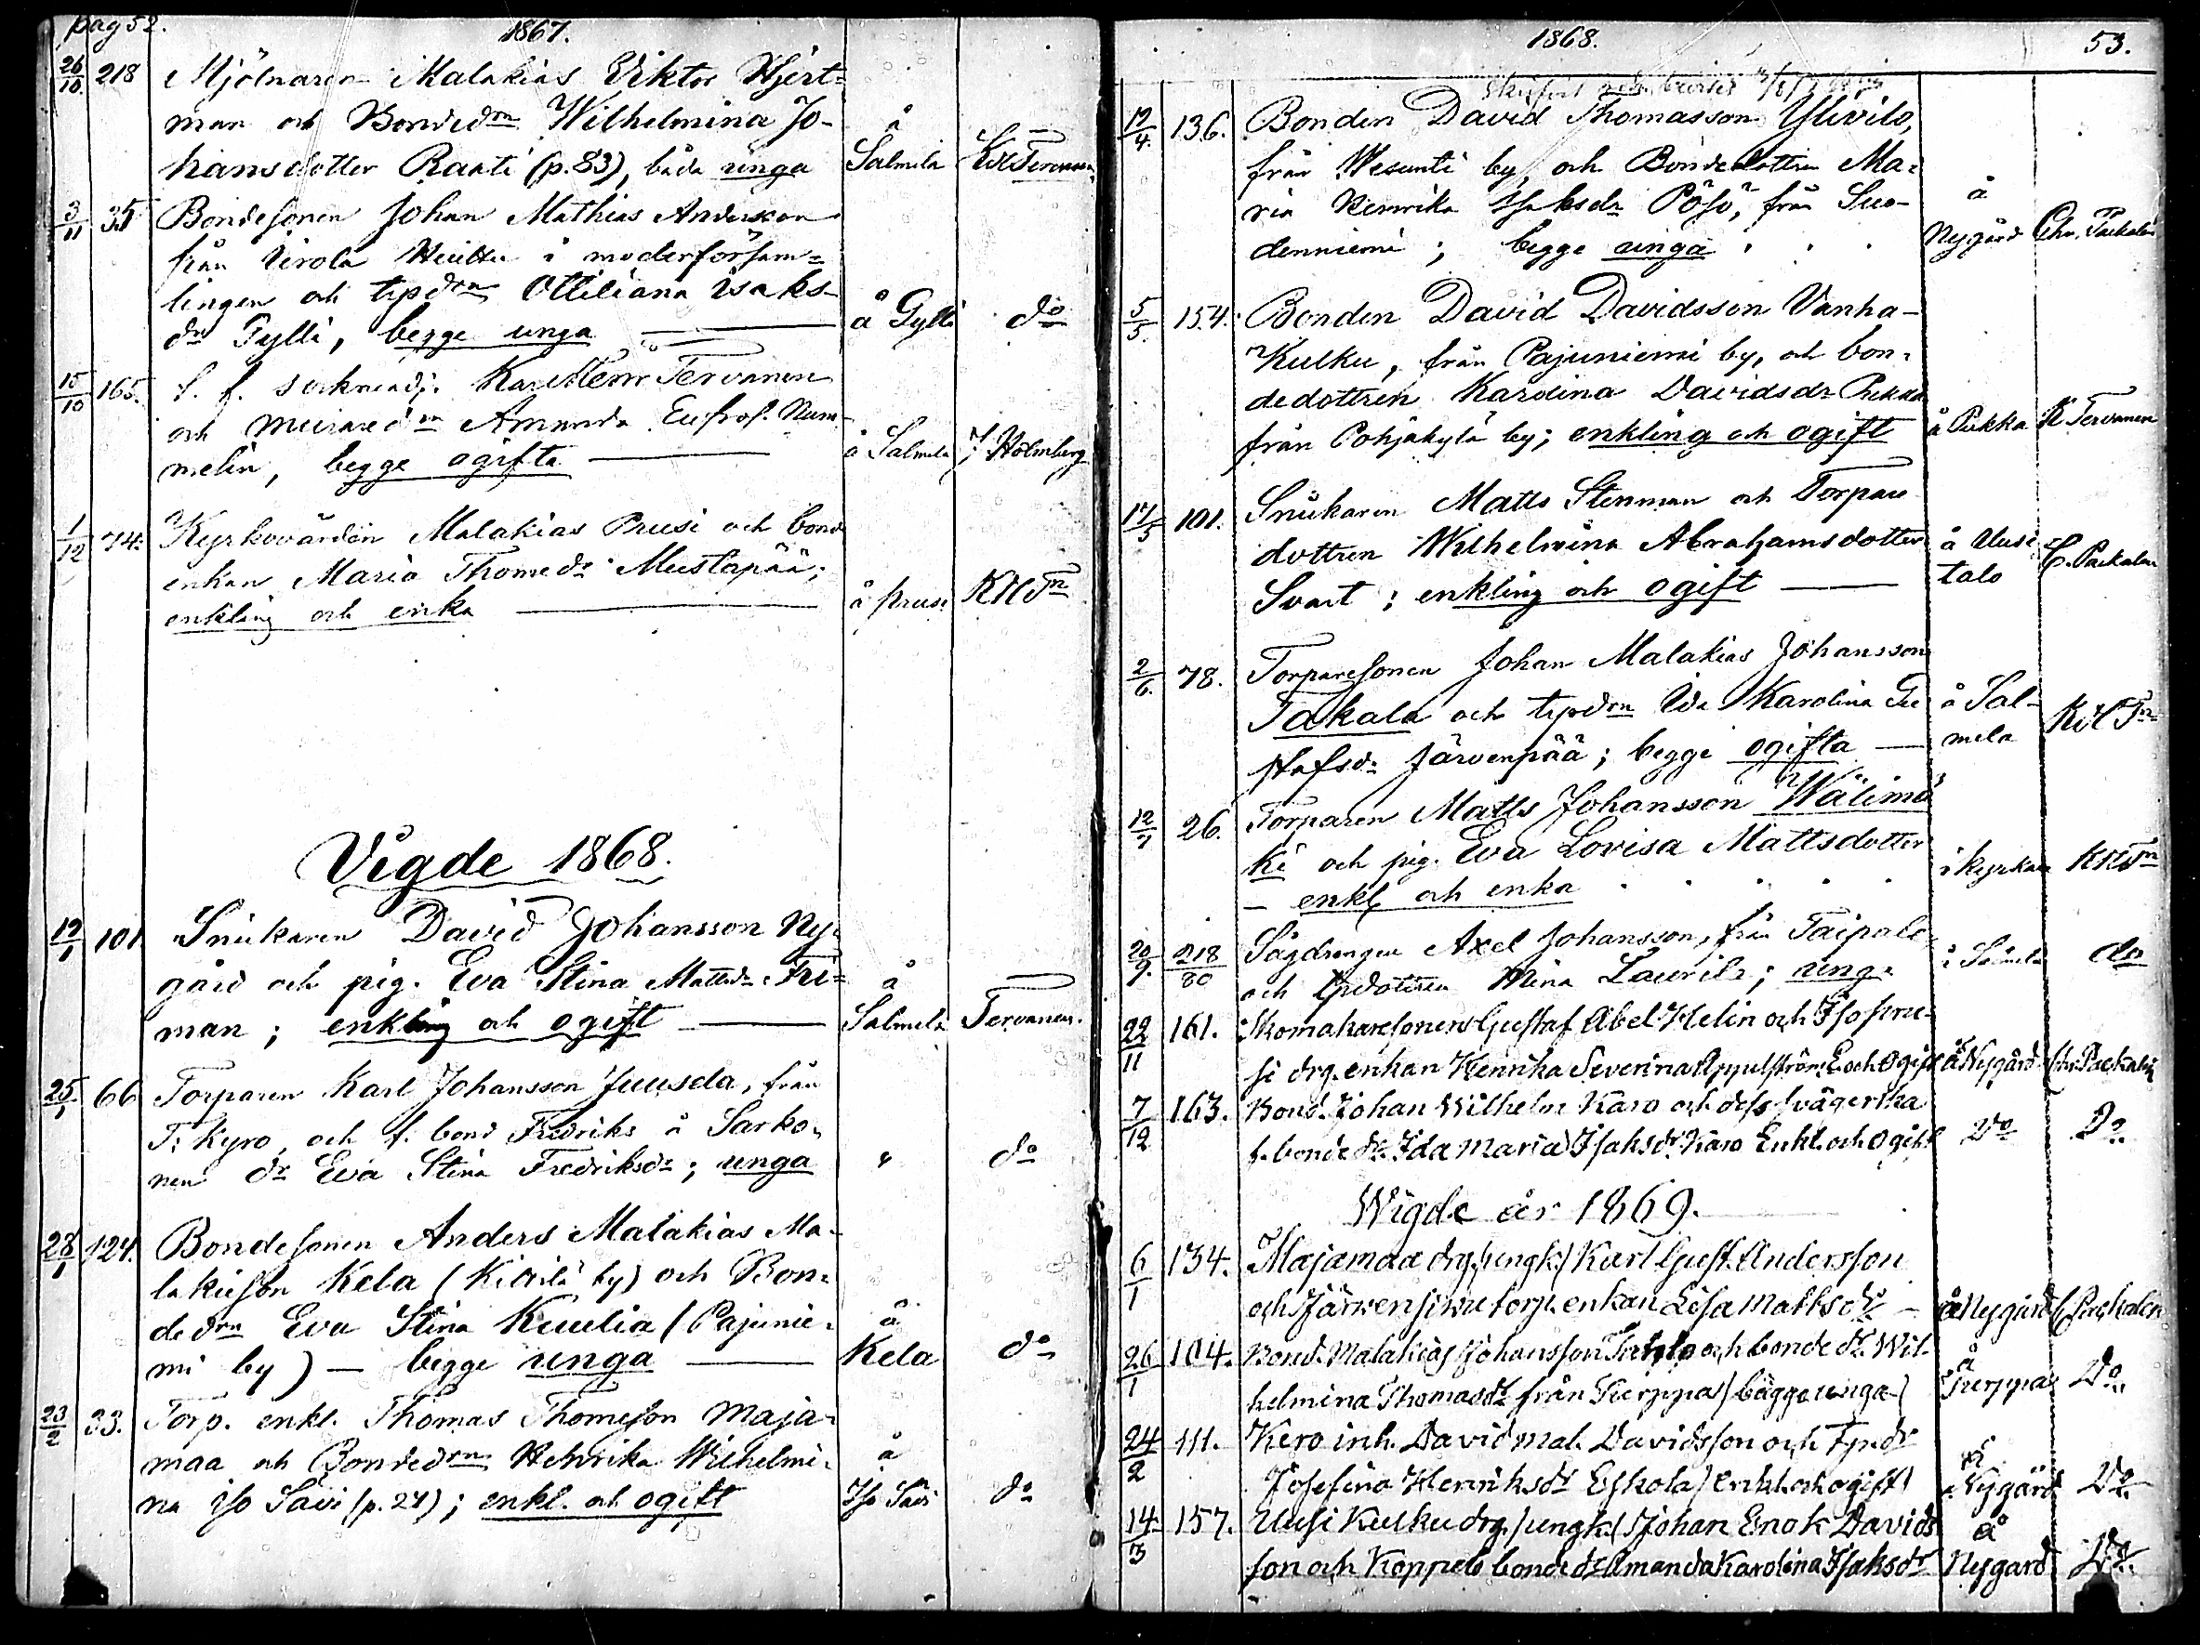 pag 52.
1867.
26/10. 218 Mjölnaren Malakias Viktor Hjert=
man och Bondedrn Wilhelmina Jo- å
hansdotter Ranti (p. 83), båda unga Salmela
3/11 35 Bondesonen Johan Mathias Andersson
från Virola i moderförsam=
lingen och tpdrn Ottiliana Isaks-
dr Pylli, begge unga å Gylli do
15/10 165. f. f. Karl Henr Tervanen
och Amanda Eufros. Num-
melin, begge ogifta å Salmela J. Holmberg
1/12 74. Kyrkovärden Malakias Prusi och bond
enkan Maria Thomedr Mustapää;
enkling och enka å prusi KHTn
Vigde 1868.
12/1 101 Snickaren David Johansson Ny-
gård och pig. Eva Stina Mattsdr Fri= å
man; enkling och ogift Salmela Tervanen.
25/1 66 Torparen Karl Johansson Juusela, från
T: Kyro, och f. bond Fredriks å Sarko-
nen dr Eva Stina Fredriksdr; unga " do
28/1 124. Bondesonen Anders Malakias Ma-
lakiesson Kela (Kittilä by) och Bon=
dedrn Eva Stina Kuulia (Pajunie- å
mi by) — begge unga Kela do
23/2 33. Torp. enkl. Thomas Thomesson Maja-
maa och Bondedrn Henrika Wilhelmi- å
na Iso Sävi (p. 24); enkl. och ogift Iso Sävi do
1868. 53.
12/4. 136. Bonden David Thomasson Ylivilo,
från Wesunti by, och Bondedottren Ma=
ria Henrika Isaksdr Pösö, från Suo- å
denniemi; begge unga Nygård Chr. Paekalén
5/5. 154. Bonden David Davidsson Vanha-
Kulku, från Pajuniemi by, och bon-
dedottren Karolina Davidsdr Pukka
från Pohjakylä by; enkling och ogift å Pukka K Tervanen
17/5 101. Snickaren Matts Stenman och Torpare
dottren Wilhelmina Abrahamsdotter å Uusi
Svart; enkling och ogift talo C. Paekalen
2/6. 78. Torparesonen Johan Malakias Johansson
Takala och tpdrn Ida Karolina Gu å Sal-
stafsdr Järvenpää; begge ogifta mela KHTn
12/7 26. Torparen Matts Johansson Wälimä
ki och pig. Eva Lovisa Mattsdotter
— enkl och enka i kyrkan KHTn
20/9. 218/80 Sågdrengen Axel Johansson, från Taipale
och tpdottren Mina Laurila; unga å Salmela do
22/11 161. Skomakaresonen Gustaf Abel Helin och Isopru-
si drg. enkan Henrika Severina Appelström E. och Ogift å Nygård Chr. Paekalén
7/12 163. Bond. Johan Wilhelm Karo och dess svägerska
f. bonde dr Ida Maria Isaksdr Karo Enkl. och Ogift Do Do
Wigde år 1869.
6/1 134. Majamaa drg. (ungk.) Karl Gust. Andersson
och Järvensivu torp. enkan Lisa Mattsdr — å Nygård C Paekalen
26/1 104. Bond. Malakias Johansson och bonde dr Wil- å
helmina Thomasdr från Pierppa (bägge unga) Pierppa Do
24/2 111. Kero inh. David Mal. Davidsson och Tp. dr å
Josefina Henriksdr Eskola (enkl. och ogift) Nygård Do
14/3 157. Uusi Kulku drg. (ungk.) Johan Enok Davids å
son och Koppelo bonde dr Amanda Karolina Isaksdr Nygård Do